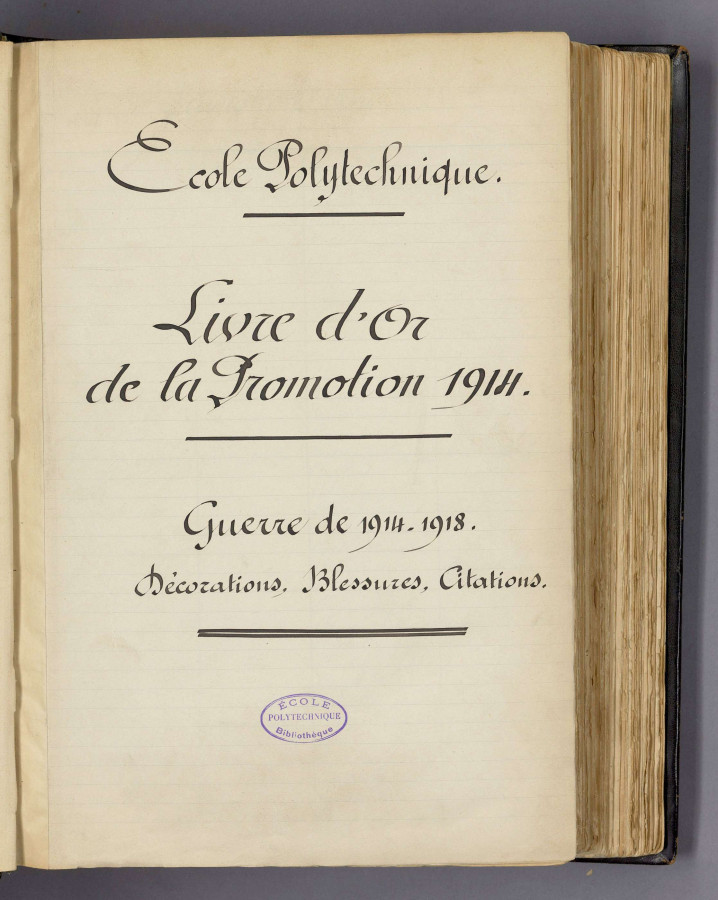 Ecole Polytechnique.
Livre d'Or
de la Promotion 1914.
Guerre de 1914-1918.
Décorations, Blessures, Citations.
ÉCOLE
POLYTECHNIQUE
Bibliothèque